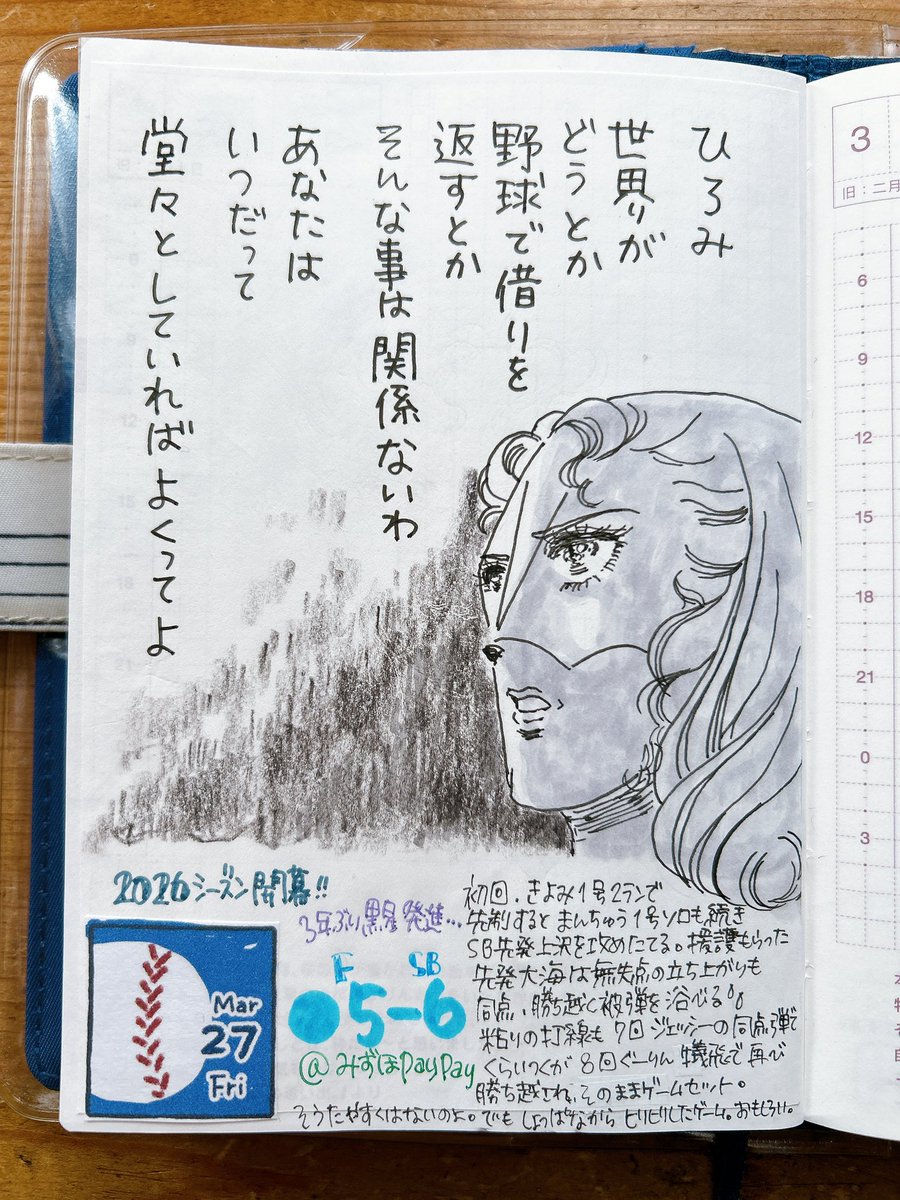 ひろみ
世界が
どうとか
野球で借りを
返すとか
そんな事は関係ないわ
あなたは
いつだって
堂々としていればよくってよ
2026シーズン開幕!!
3年ぶり黒星発進…
F SB
5-6
@みずほPayPay
Mar
27
Fri
初回、きよみ1号2ランで
先制するとまんちゅう1号ソロも続き
SB先発上沢を攻めたてる。援護もらった
先発大海は無失点の立ち上がりも
同点、勝ち越く被弾を浴びる。
粘りの打線も7回ジェッシーの同点弾で
くらいつくが8回ぐーりん犠飛で再び
勝ち越され、そのままゲームセット。
そうたやすくはないのよ。でもしょっぱなからヒリヒリしたゲーム。おもしろい。
3
旧:二月
6
9
12
15
18
21
0
3